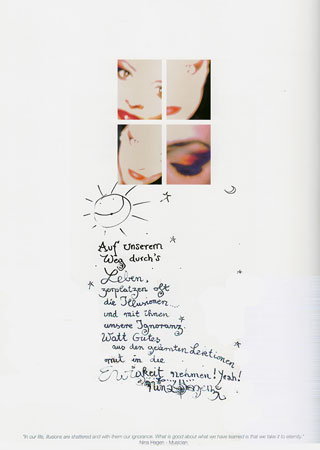 Auf unserem
Weg durch's
Leben,
zerplatzen oft
die Illusionen...
und mit ihnen
unsere Ignoranz.
Watt Gutes
aus den gelernten Lektionen
mut in die
Ewigkeit nehmen! Yeah!
Nina Hagen
"In our life, illusions are shattered and with them our ignorance. What is good about what we have learned is that we take it to eternity."
Nina Hagen - Musician